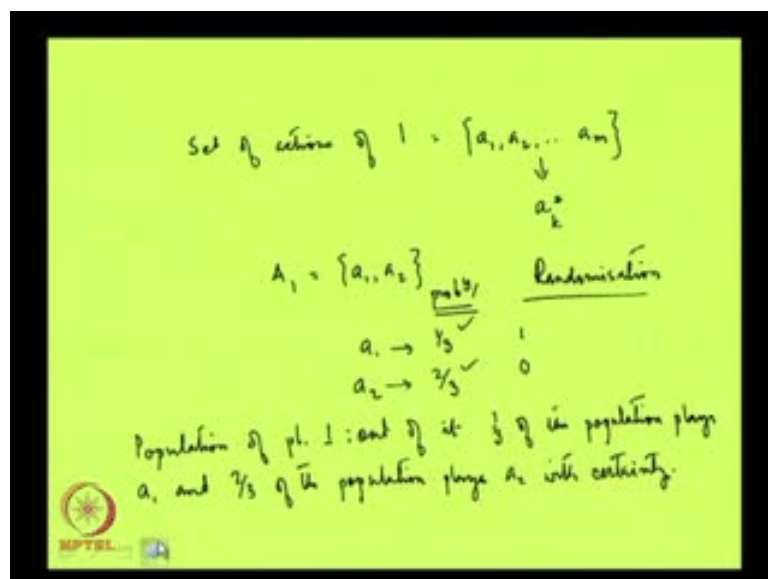 Set of actions of 1 = {a₁, a₂, ... aₘ}
↓
a*ₖ
A₁ = {a₁, a₂} Randomisation
prob^y/
a₁ → 1/3 ✓ 1
a₂ → 2/3 ✓ 0
Population of pl. 1 : out of it 1/3 of the population plays
a₁ and 2/3 of the population plays a₂ with certainty.
NPTEL